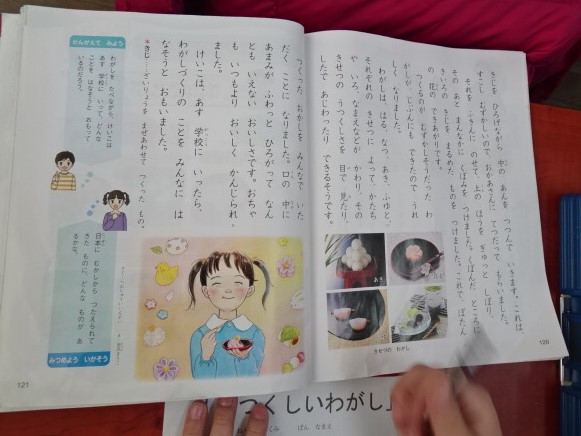 きじを ひろげながら 中の あんを つつんで いきます。これは、
すこし むずかしいので、おかあさんに てつだって もらいました。
それを ふきんに のせて、上の ほうを ぎゅっと しぼり、
その あと まんなかに くぼみを つけました。くぼんだ ところに
きいろの きじを まるめた ものを つけました。これで、ぼたん
の 花の できあがりです。
つくるのが むずかしそうだった わ
がしが、じぶんにも できたので うれ
しく なりました。
わがしは、はる、なつ、あき、ふゆと、
それぞれの きせつに よって、かたち
や いろ、なまえなどが かわり、その
きせつの うつくしさを 目で 見たり、
したで あじわったり できるそうです。
あき
きせつの わがし
120
つくった おかしを みんなで いた
だく ことに なりました。口の 中に
あまみが ふわっと ひろがって なん
とも いえない おいしさです。おちゃ
も いつもより おいしく かんじられ
ました。
けいこは、あす 学校に いったら、
わがしづくりの ことを みんなに は
なそうと おもいました。
*きじ……ざいりょうを まぜあわせて つくった もの。
かんがえて みよう
わがしを たべながら、けいこは
あす 学校に いって、どんな
ことを はなそうと おもって
いるのだろう。
日本に むかしから つたえられて
きた ものに、どんな ものが あ
るかな。
みつめよう いかそう
121
つくしいわがし」
くみ ばん なまえ